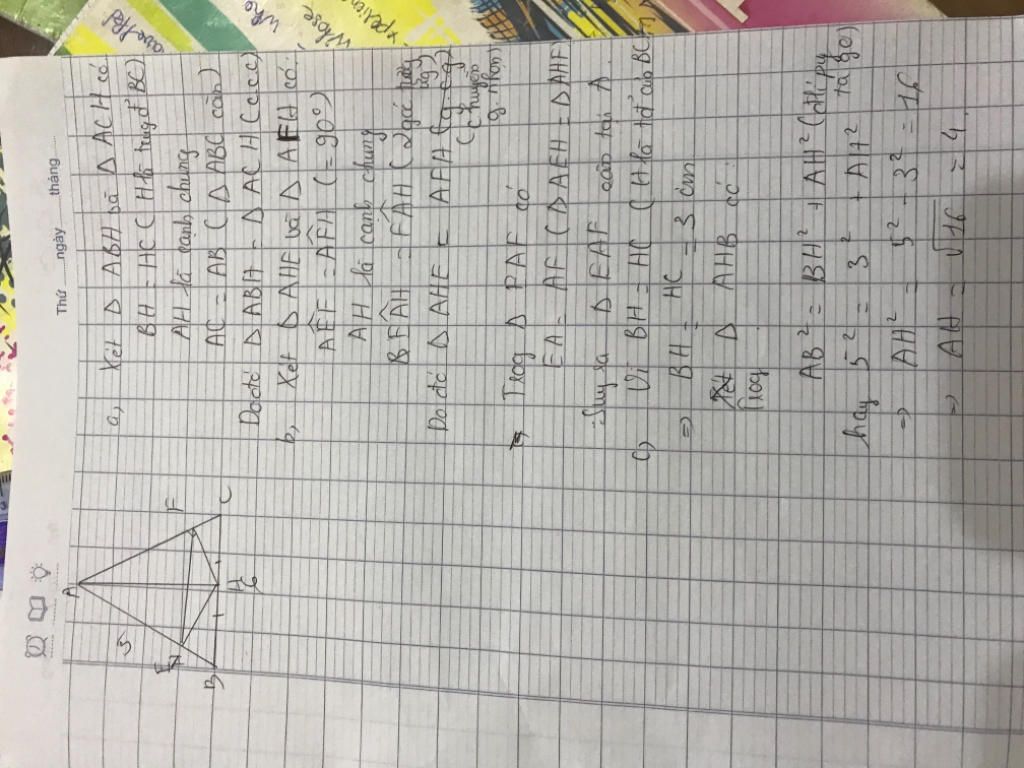 Thứ ngày tháng
a, Xét Δ ABH và Δ ACH có
BH = HC ( H là trung đ BC)
AH là cạnh chung
AC = AB ( Δ ABC cân)
Do đó Δ ABH = Δ ACH ( c c c)
b, Xét Δ AHE và Δ AFH có:
AÊF = AF̂H ( = 90°)
AH là cạnh chung
BFÂH = FÂH ( 2 góc
Do đó Δ AHE = AFH
( ch huyền
g. nhọn)
Trog Δ PAF có
EA = AF ( Δ AEH = Δ AHF
Suy ra Δ EAF cân tại A
c, Vì BH = HC ( H là tđ cạh BC
=> BH = HC = 3 cm
Trog Δ AHB có
AB² = BH² + AH² (đlí py
ta go)
hay 5² = 3² + AH²
=> AH² = 5² - 3² = 16
=> AH = √16 = 4
A
5
E
F
B
H
C
6
Whose
who